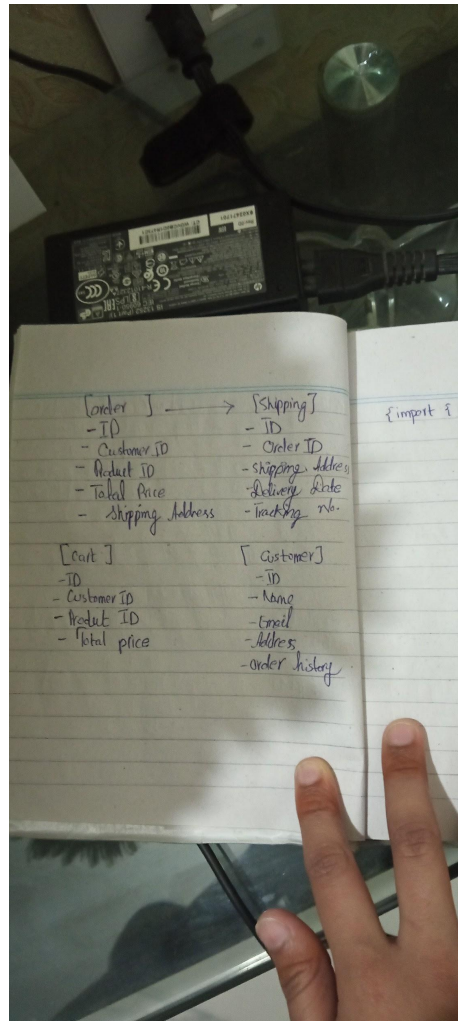 [order ] → [Shipping]
- ID
- Customer ID
- Product ID
- Total Price
- Shipping Address
- ID
- Order ID
- Shipping Address
- Delivery Date
- Tracking No.
[Cart ]
- ID
- Customer ID
- Product ID
- Total price
[ Customer]
- ID
- Name
- Email
- Address
- order history
{import {